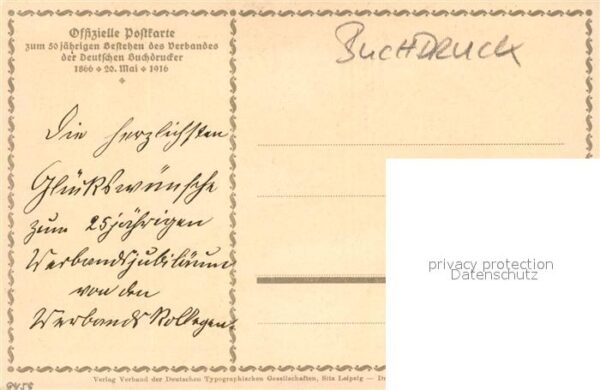 Offizielle Postkarte
zum 50 jährigen Bestehen des Verbandes
der Deutschen Buchdrucker
1866 ✦ 20. Mai ✦ 1916
BuchDruck
Die herzlichsten
Glückswünsche
zum 25jährigen
Verbandsjubiläum
von den
Verbands Kollegen.
privacy protection
Datenschutz
Verlag Verband der Deutschen Typographischen Gesellschaften, Sitz Leipzig — Dr